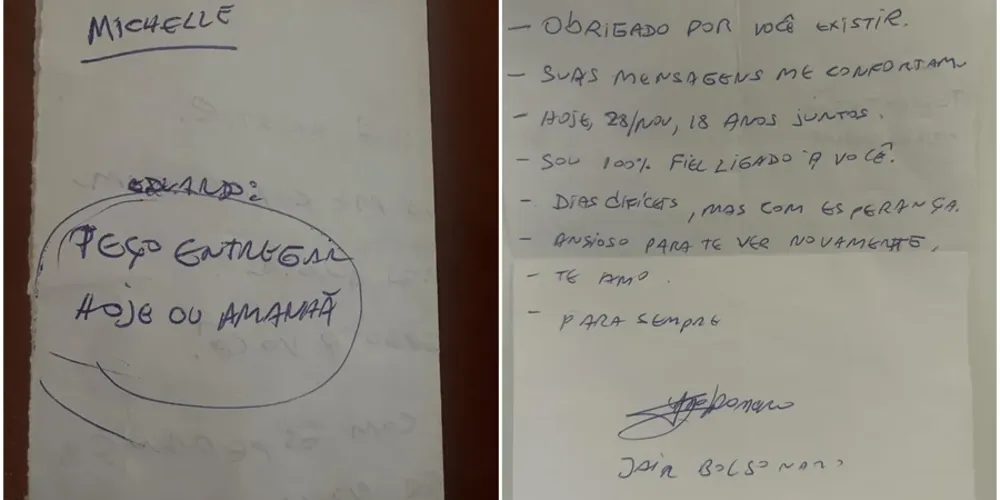 MICHELLE
EDUARDO:
PEÇO ENTREGAR
HOJE OU AMANHÃ
- OBRIGADO POR VOCÊ EXISTIR.
- SUAS MENSAGENS ME CONFORTAM
- HOJE, 28/NOV, 18 ANOS JUNTOS.
- SOU 100% FIEL LIGADO A VOCÊ.
- DIAS DIFÍCEIS, MAS COM ESPERANÇA.
- ANSIOSO PARA TE VER NOVAMENTE,
- TE AMO.
- PARA SEMPRE
JAIR BOLSONARO